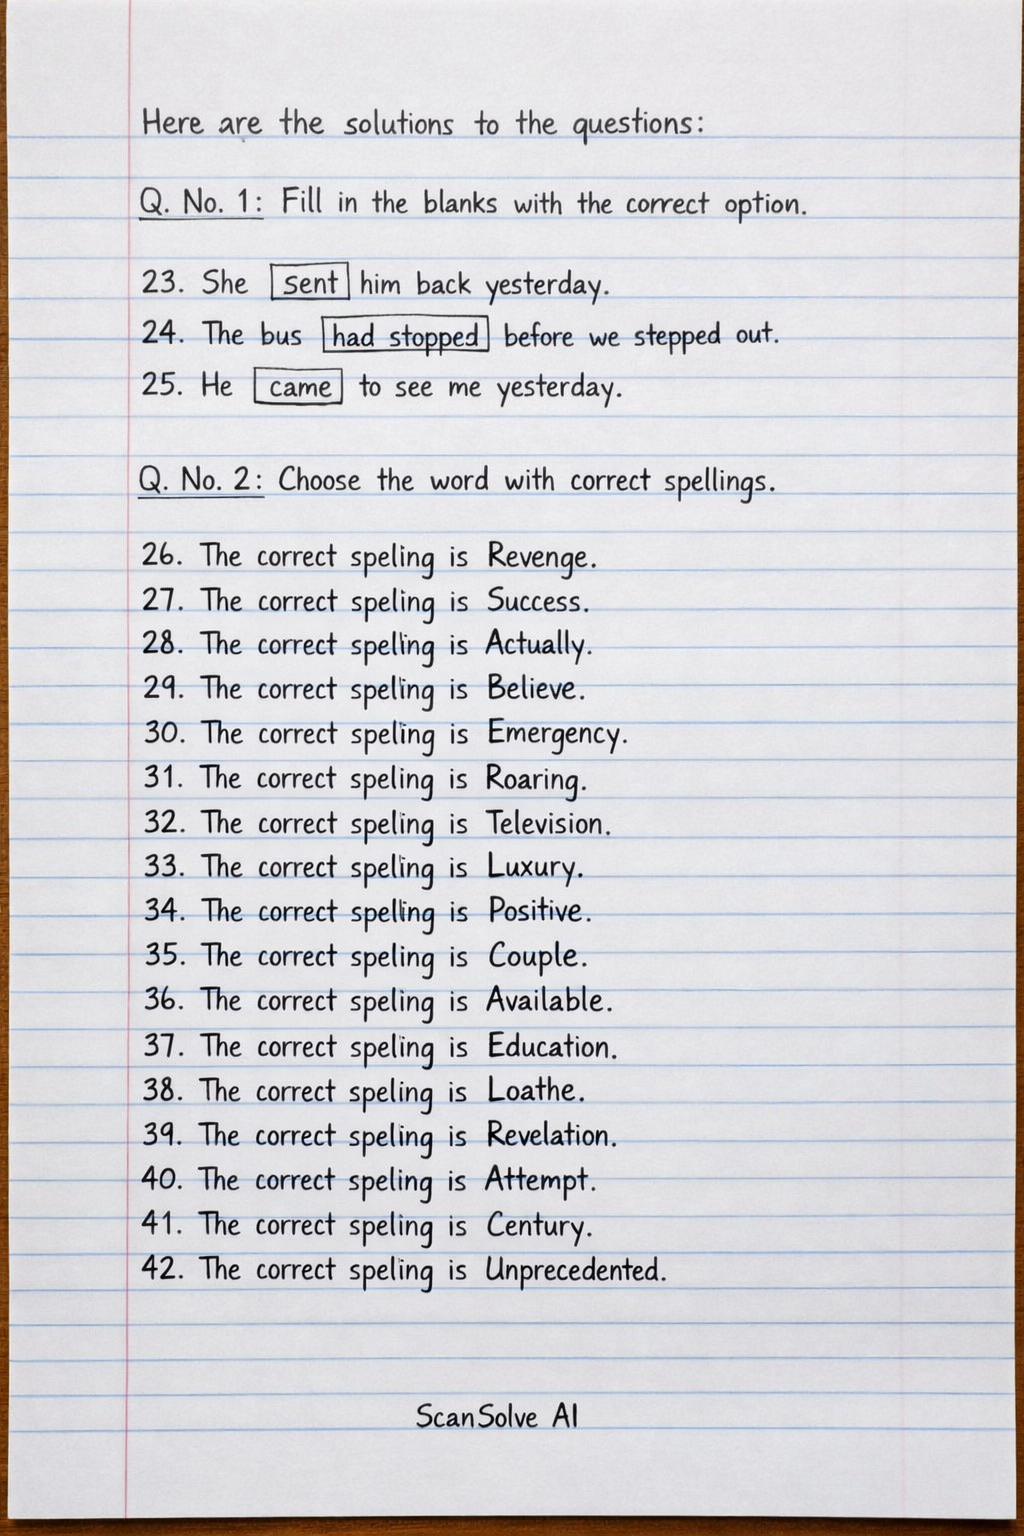 Here are the solutions to the questions:
Q. No. 1: Fill in the blanks with the correct option.
23. She sent him back yesterday.
24. The bus had stopped before we stepped out.
25. He came to see me yesterday.
Q. No. 2: Choose the word with correct spellings.
26. The correct speling is Revenge.
27. The correct speling is Success.
28. The correct spelling is Actually.
29. The correct speling is Believe.
30. The correct speling is Emergency.
31. The correct speling is Roaring.
32. The correct speling is Television.
33. The correct speling is Luxury.
34. The correct spelling is Positive.
35. The correct speling is Couple.
36. The correct speling is Available.
37. The correct speling is Education.
38. The correct speling is Loathe.
39. The correct speling is Revelation.
40. The correct speling is Attempt.
41. The correct speling is Century.
42. The correct speling is Unprecedented.
ScanSolve AI